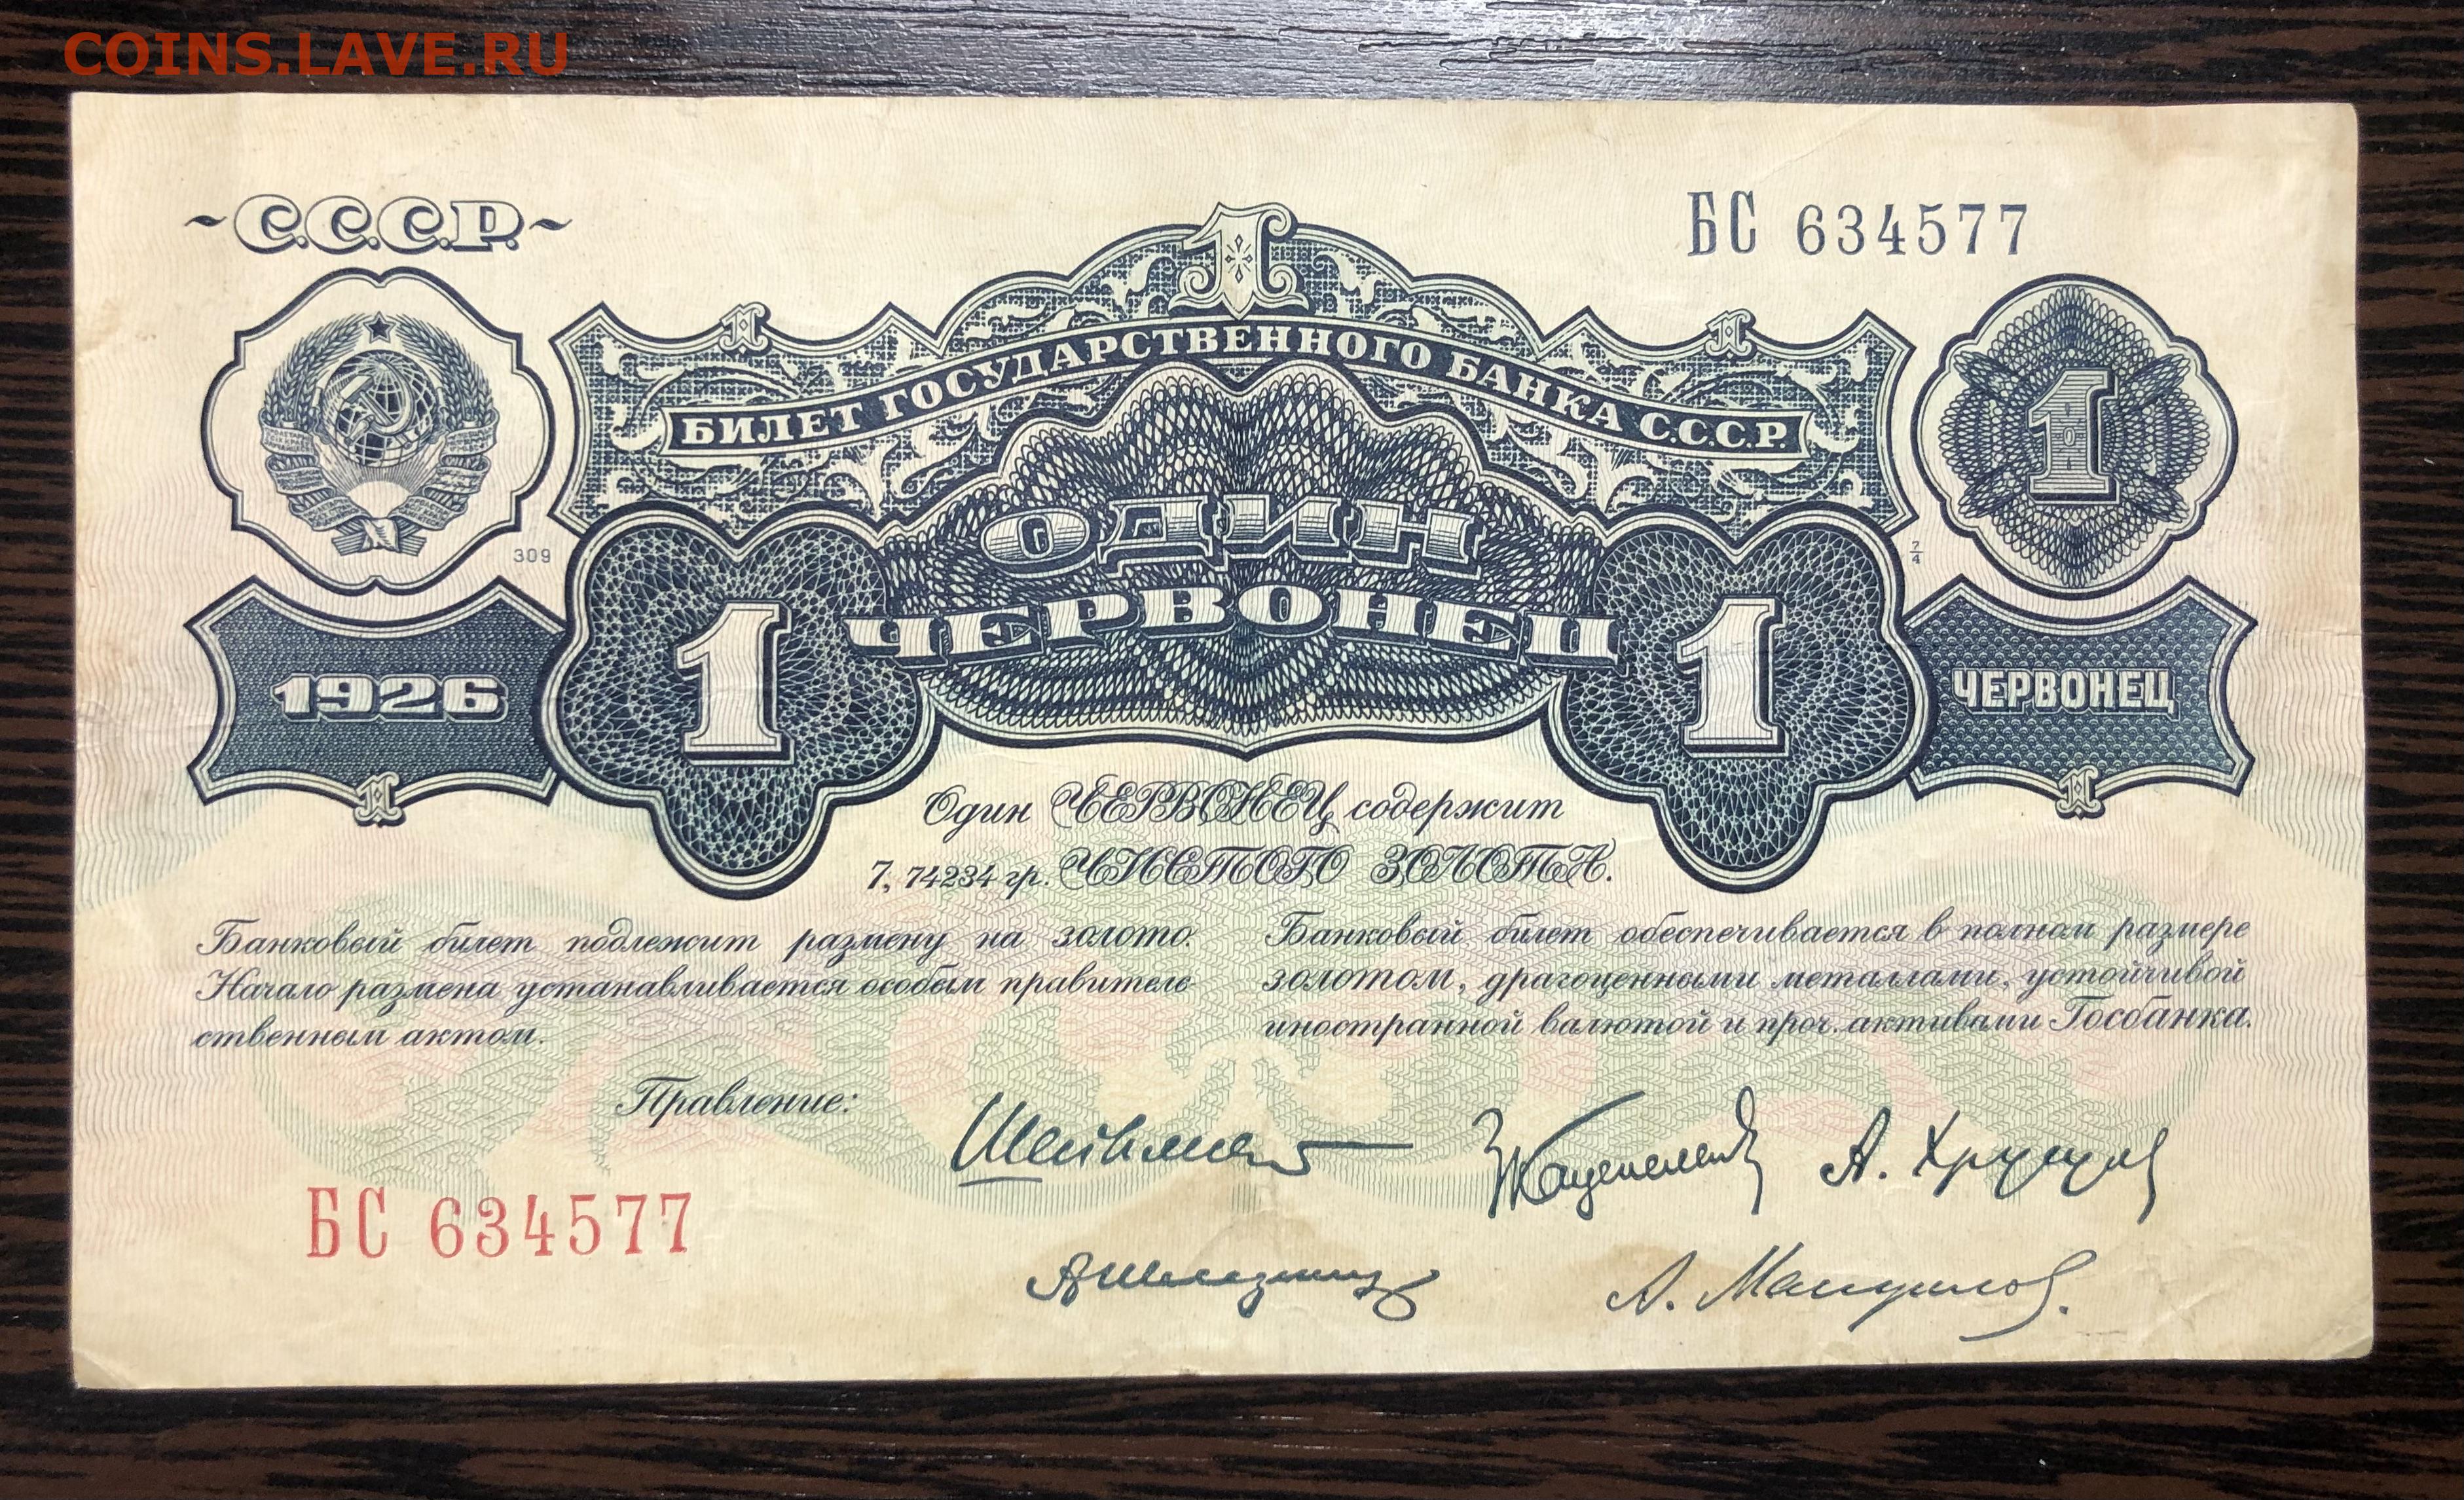 COINS.LAVE.RU
С.С.С.Р.
БС 634577
1
1 1
БИЛЕТ ГОСУДАРСТВЕННОГО БАНКА С.С.С.Р.
1
ОДИН
309
ЧЕРВОНЕЦ
1 1
1926
ЧЕРВОНЕЦ
1 1
Один ЧЕРВОНЕЦ содержит
7, 74234 гр. ЧИСТОГО ЗОЛОТА.
Банковый билет подлежит размену на золото.
Начало размена устанавливается особым правитель
ственным актом.
Банковый билет обеспечивается в полном размере
золотом, драгоценными металлами, устойчивой
иностранной валютой и проч. активами Госбанка.
Правление:
БС 634577